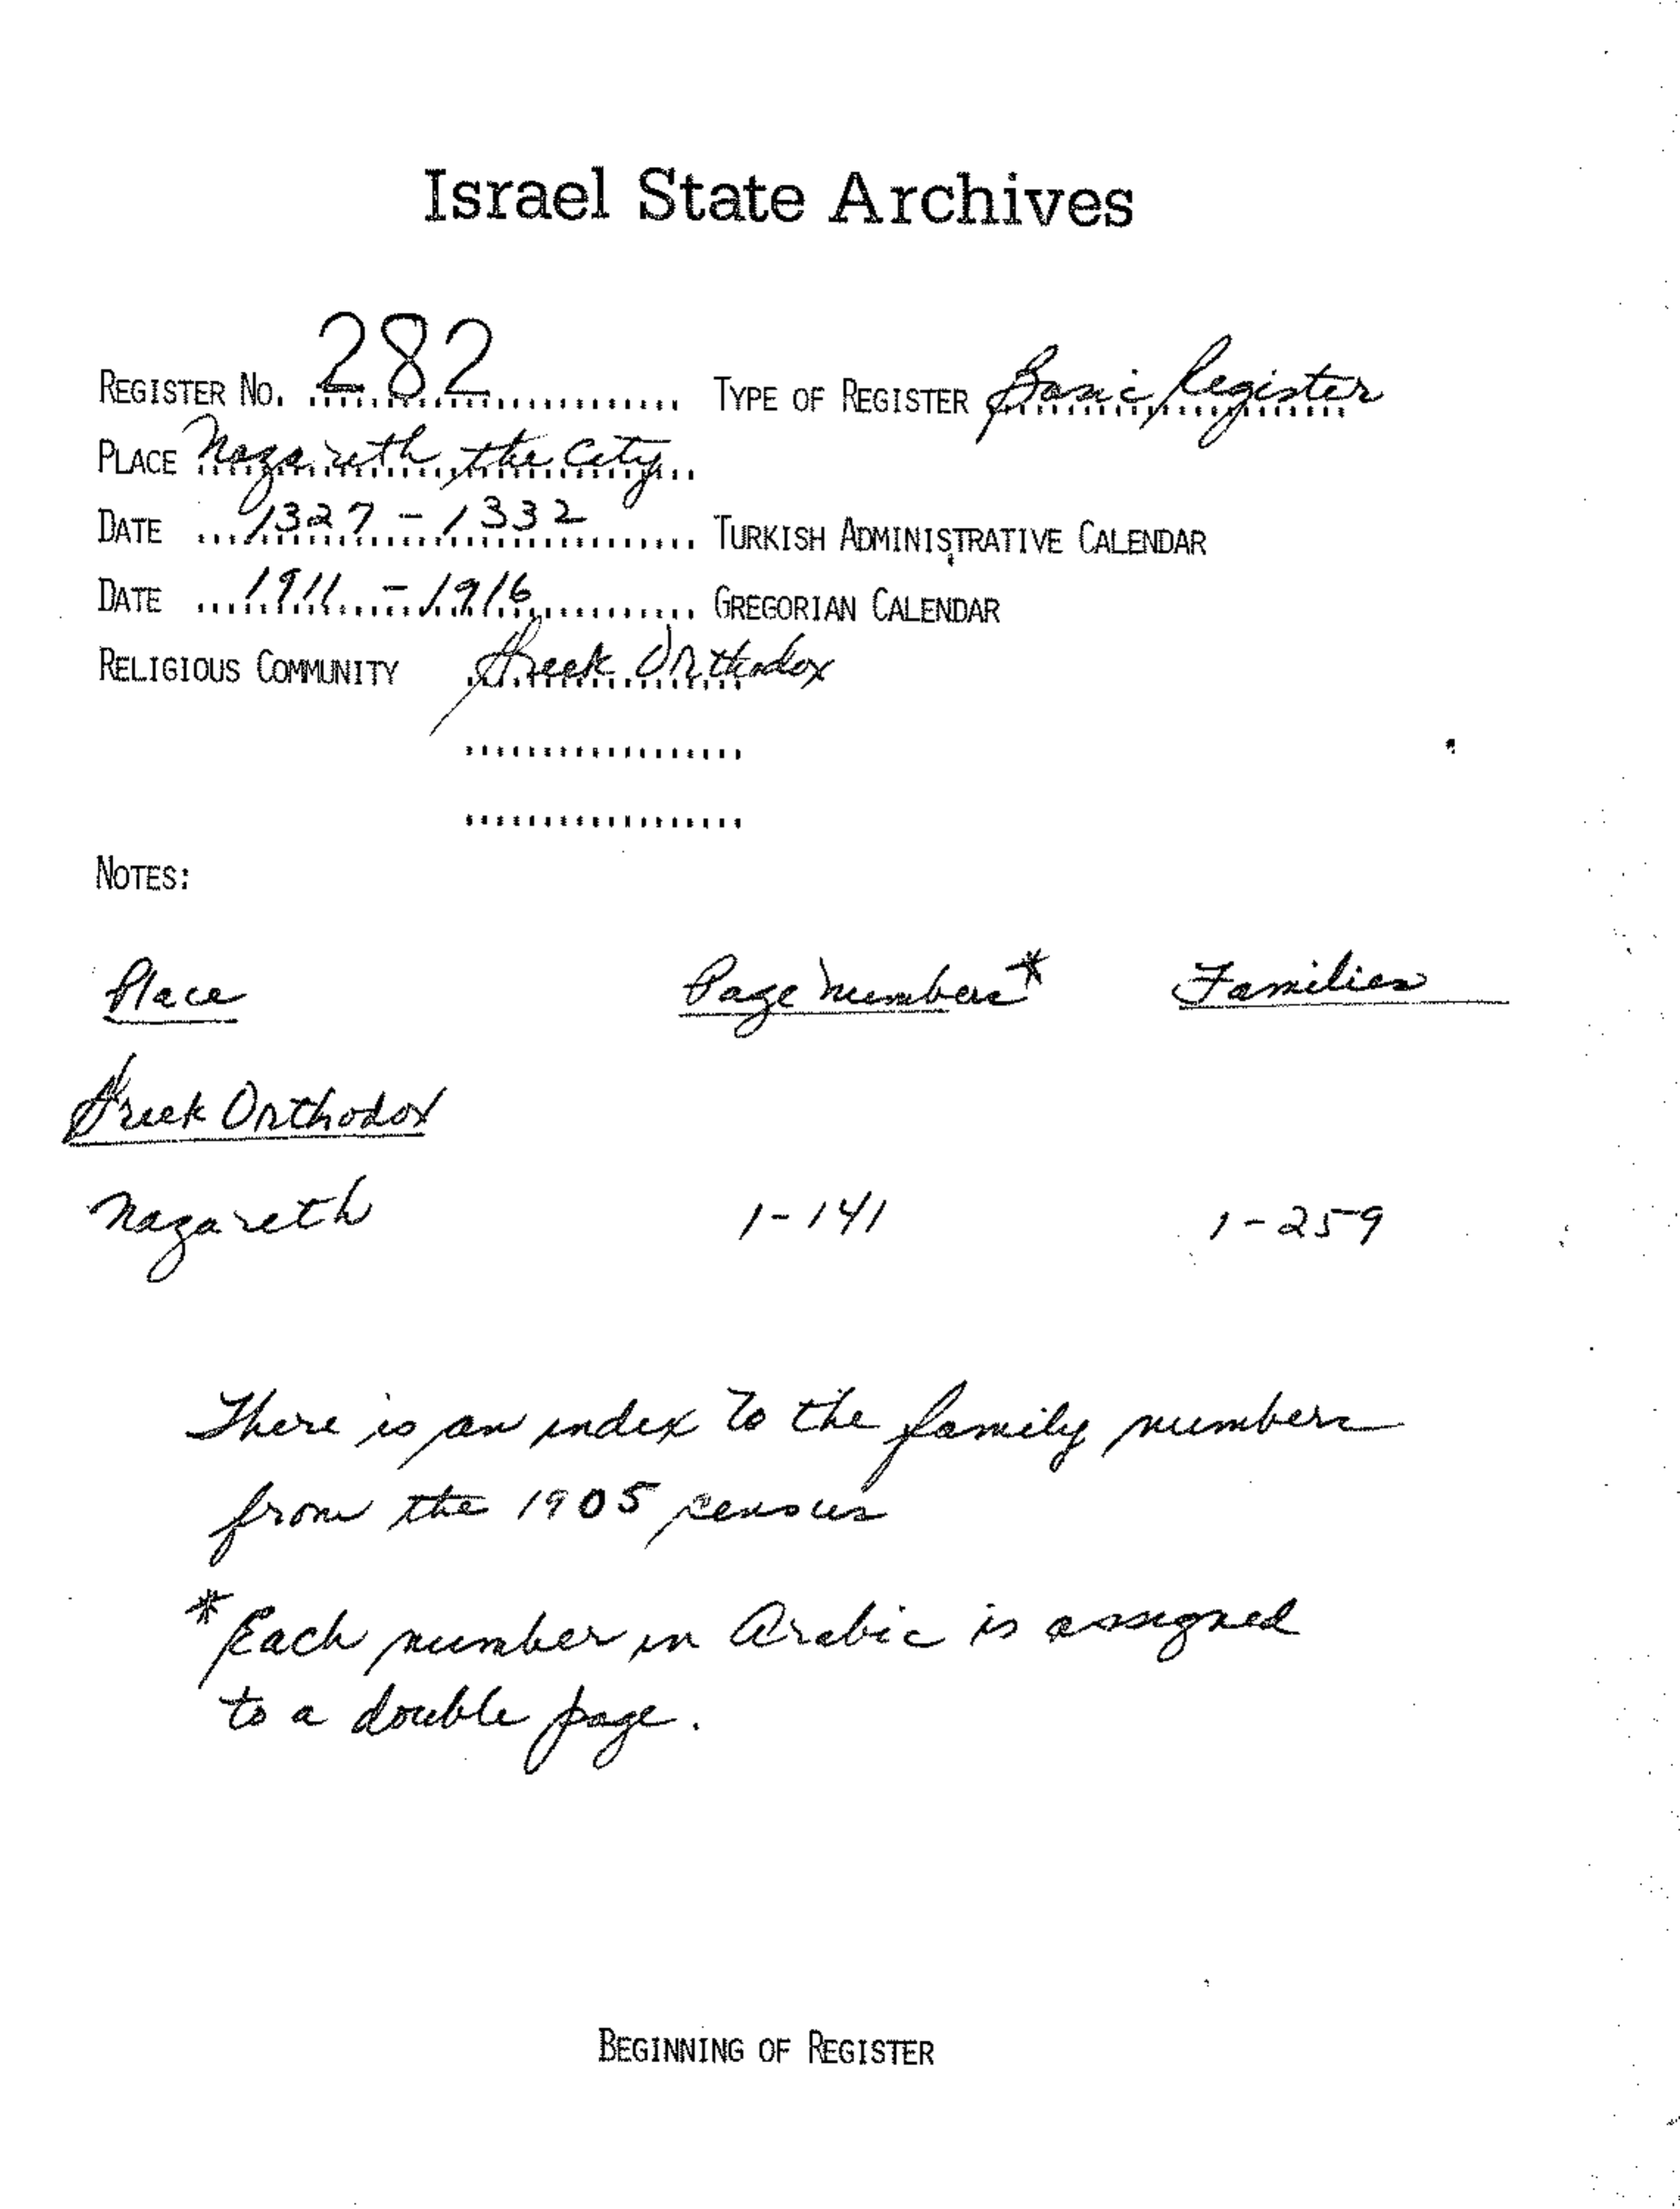 Israel State Archives
REGISTER NO. 282 TYPE OF REGISTER Basic Register
PLACE Nazareth, the City
DATE 1327 - 1332 TURKISH ADMINISTRATIVE CALENDAR
DATE 1911 - 1916 GREGORIAN CALENDAR
RELIGIOUS COMMUNITY Greek Orthodox
NOTES:
Place Page Numbers* Families
Greek Orthodox
Nazareth 1-141 1-259
There is an index to the family numbers
from the 1905 census
*Each number in Arabic is assigned
to a double page.
BEGINNING OF REGISTER